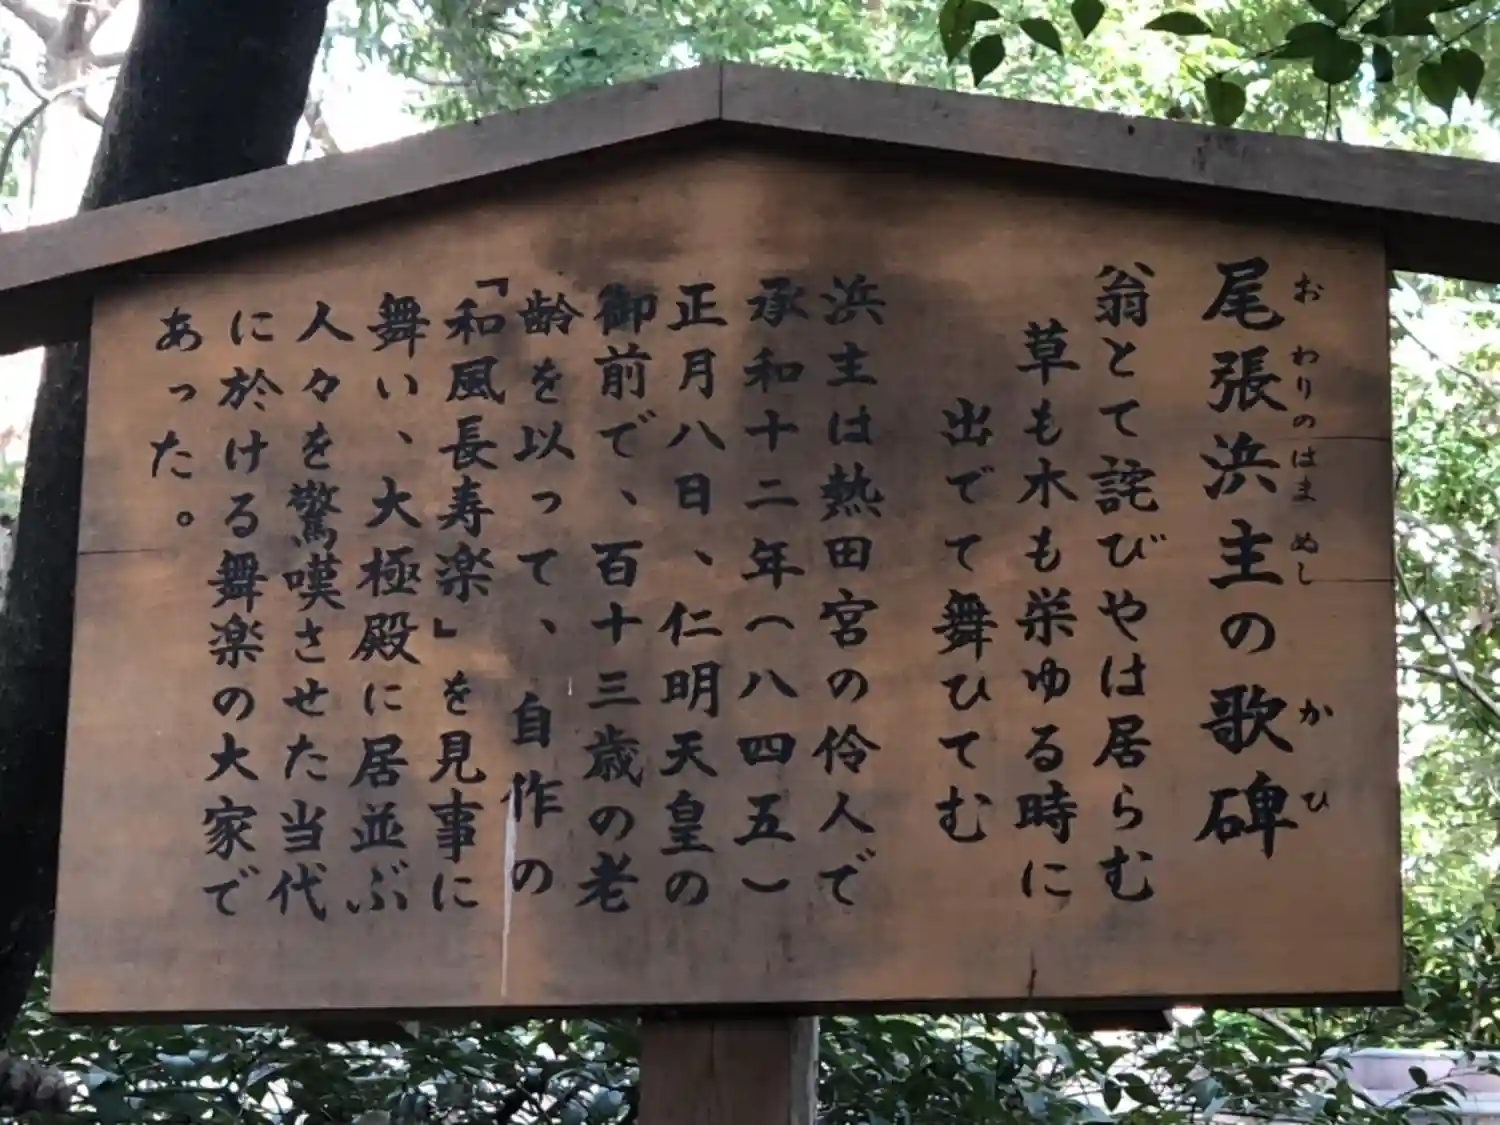 尾張浜主の歌碑
おわりのはまぬし かひ
翁とて詫びやは居らむ
草も木も栄ゆる時に
出でて舞ひてむ
浜主は熱田宮の伶人で
承和十二年(八四五)
正月八日、仁明天皇の
御前で、百十三歳の老
齢を以って、自作の
「和風長寿楽」を見事に
舞い、大極殿に居並ぶ
人々を驚嘆させた当代
に於ける舞楽の大家で
あった。